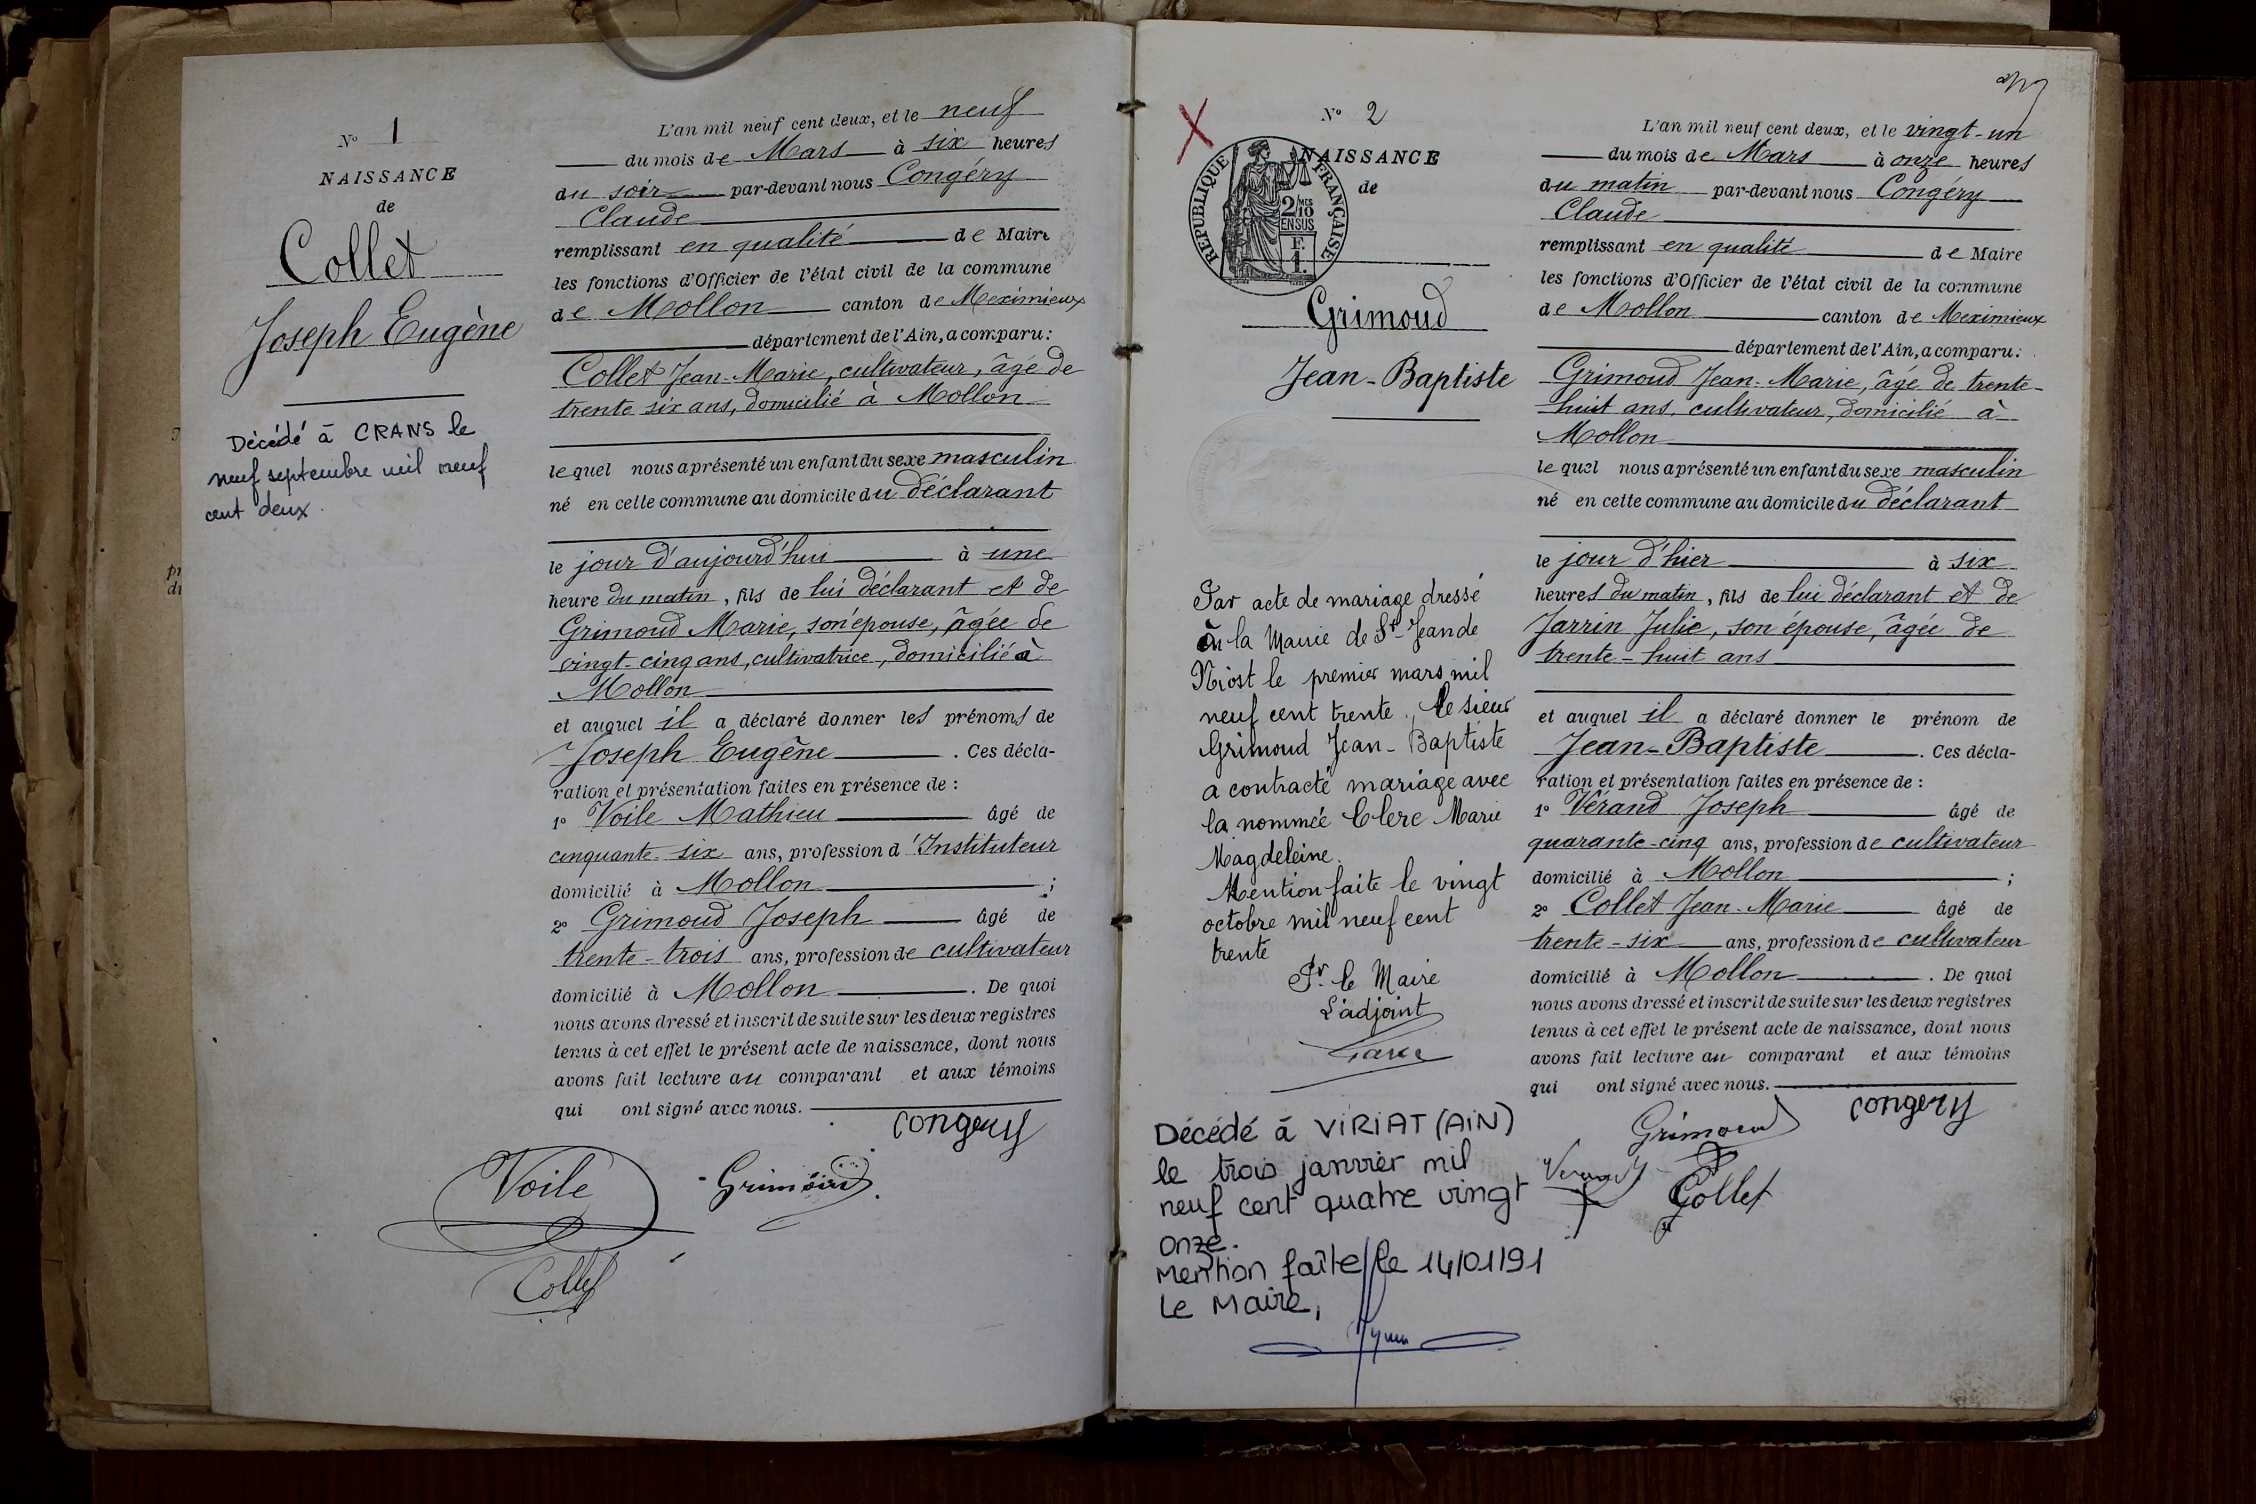 N° 1
NAISSANCE
de
Collet
Joseph Eugène
Décédé à CRANS le
neuf septembre mil neuf
cent deux.
L'an mil neuf cent deux, et le neuf
du mois de Mars à six heures
du soir par-devant nous Congéry
Claude
remplissant en qualité de Maire
les fonctions d'Officier de l'état civil de la commune
de Mollon canton de Meximieux
département de l'Ain, a comparu:
Collet Jean-Marie, cultivateur, âgé de
trente six ans, domicilié à Mollon
lequel nous a présenté un enfant du sexe masculin
né en cette commune au domicile du déclarant
le jour d'aujourd'hui à une
heure du matin, fils de lui déclarant et de
Grimoud Marie, son épouse, âgée de
vingt-cinq ans, cultivatrice, domicilié à
Mollon
et auquel il a déclaré donner les prénoms de
Joseph Eugène. Ces décla-
ration et présentation faites en présence de :
1° Voile Mathieu âgé de
cinquante-six ans, profession d'Instituteur
domicilié à Mollon ;
2° Grimoud Joseph âgé de
trente-trois ans, profession de cultivateur
domicilié à Mollon. De quoi
nous avons dressé et inscrit de suite sur les deux registres
tenus à cet effet le présent acte de naissance, dont nous
avons fait lecture au comparant et aux témoins
qui ont signé avec nous.
Congery
Voile
Grimoud
Collet
N° 2
NAISSANCE
de
REPUBLIQUE FRANÇAISE
2/10 MES
EN SUS
F.
1.
Grimoud
Jean-Baptiste
Par acte de mariage dressé
à la Mairie de St Jean de
Niost le premier mars mil
neuf cent trente, le sieur
Grimoud Jean-Baptiste
a contracté mariage avec
la nommée Clerc Marie
Magdeleine.
Mention faite le vingt
octobre mil neuf cent
trente
Pr le Maire
L'adjoint
Décédé à VIRIAT (AIN)
le trois janvier mil
neuf cent quatre vingt
onze.
Mention faite le 14/01/91
Le Maire,
L'an mil neuf cent deux, et le vingt-un
du mois de Mars à onze heures
du matin par-devant nous Congéry
Claude
remplissant en qualité de Maire
les fonctions d'Officier de l'état civil de la commune
de Mollon canton de Meximieux
département de l'Ain, a comparu:
Grimoud Jean-Marie, âgé de trente-
huit ans, cultivateur, domicilié à
Mollon
lequel nous a présenté un enfant du sexe masculin
né en cette commune au domicile du déclarant
le jour d'hier à six
heures du matin, fils de lui déclarant et de
Jarrin Julie, son épouse, âgée de
trente-huit ans
et auquel il a déclaré donner le prénom de
Jean-Baptiste. Ces décla-
ration et présentation faites en présence de :
1° Vérand Joseph âgé de
quarante-cinq ans, profession de cultivateur
domicilié à Mollon ;
2° Collet Jean-Marie âgé de
trente-six ans, profession de cultivateur
domicilié à Mollon. De quoi
nous avons dressé et inscrit de suite sur les deux registres
tenus à cet effet le présent acte de naissance, dont nous
avons fait lecture au comparant et aux témoins
qui ont signé avec nous.
Congery
Grimoud
Verand
Collet